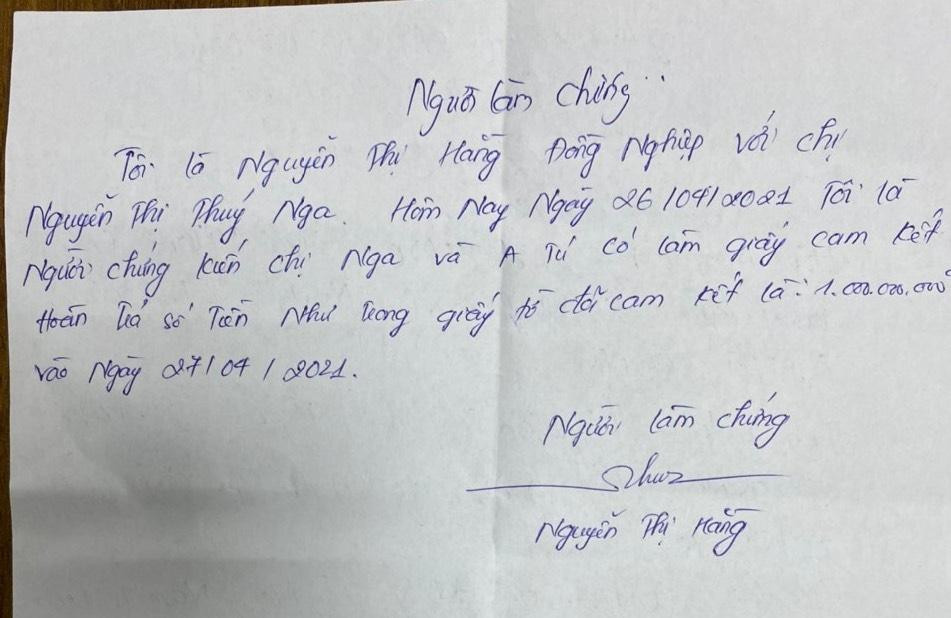 Người làm chứng
Tôi là Nguyễn Thị Hằng Đồng Nghiệp với chị
Nguyễn Thị Thuý Nga. Hôm Nay Ngày 26/04/2021 Tôi là
Người chứng kiến chị Nga và A Tú có làm giấy cam kết
Hoàn trả số Tiền Như trong giấy tờ đã cam kết là: 1.000.000.000đ
vào Ngày 27/04/2021.
Người làm chứng
Nguyễn Thị Hằng